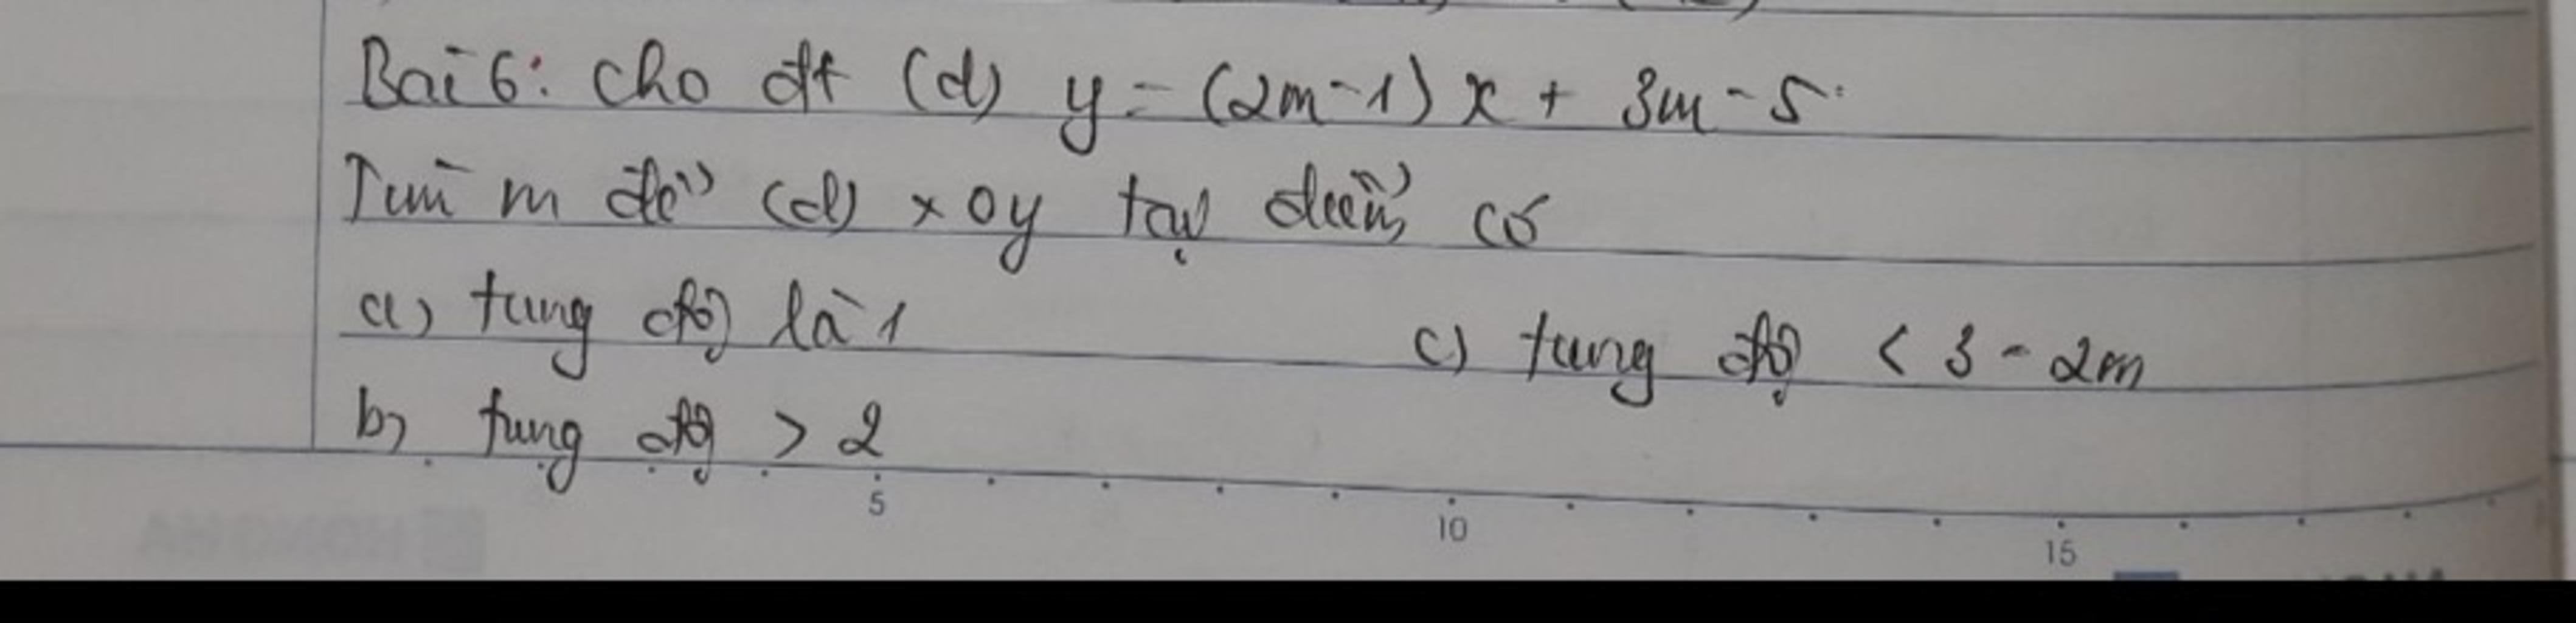 Bài 6: Cho đt (d) y = (2m-1) x + 3m - 5
Tìm m để (d) x Oy tại điểm có
a) tung độ là 1
c) tung độ < 3 - 2m
b) tung độ > 2
5
10
15